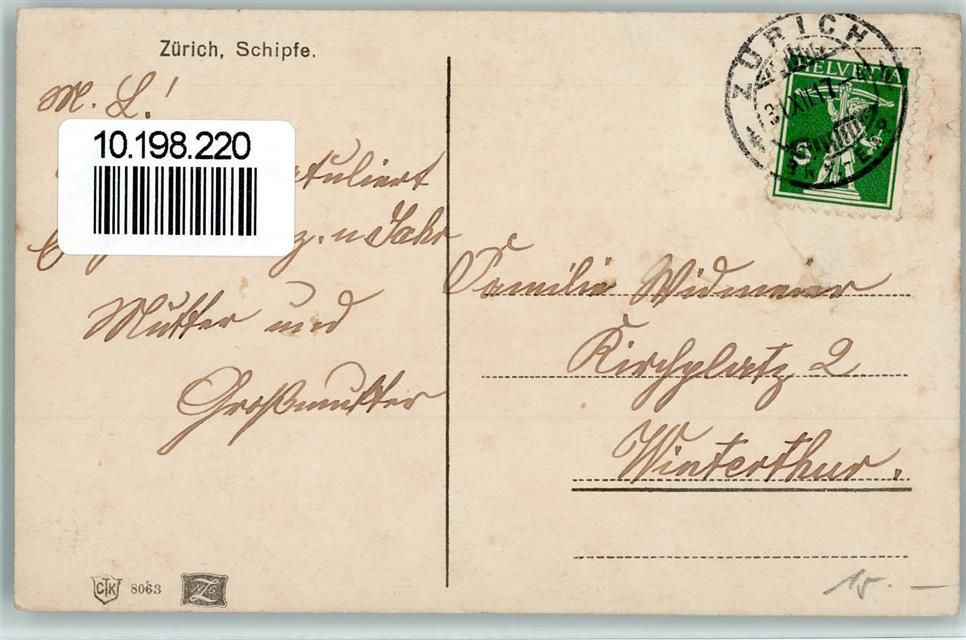 Zürich, Schipfe.
M. L.!
10.198.220
tuliert
z. n Jahr
Mutter und
Großmutter
ZÜRICH
31.XII.17
HELVETIA
5
Familie Widmeier
Kirchplatz 2
Winterthur.
CTK 8063
15.-